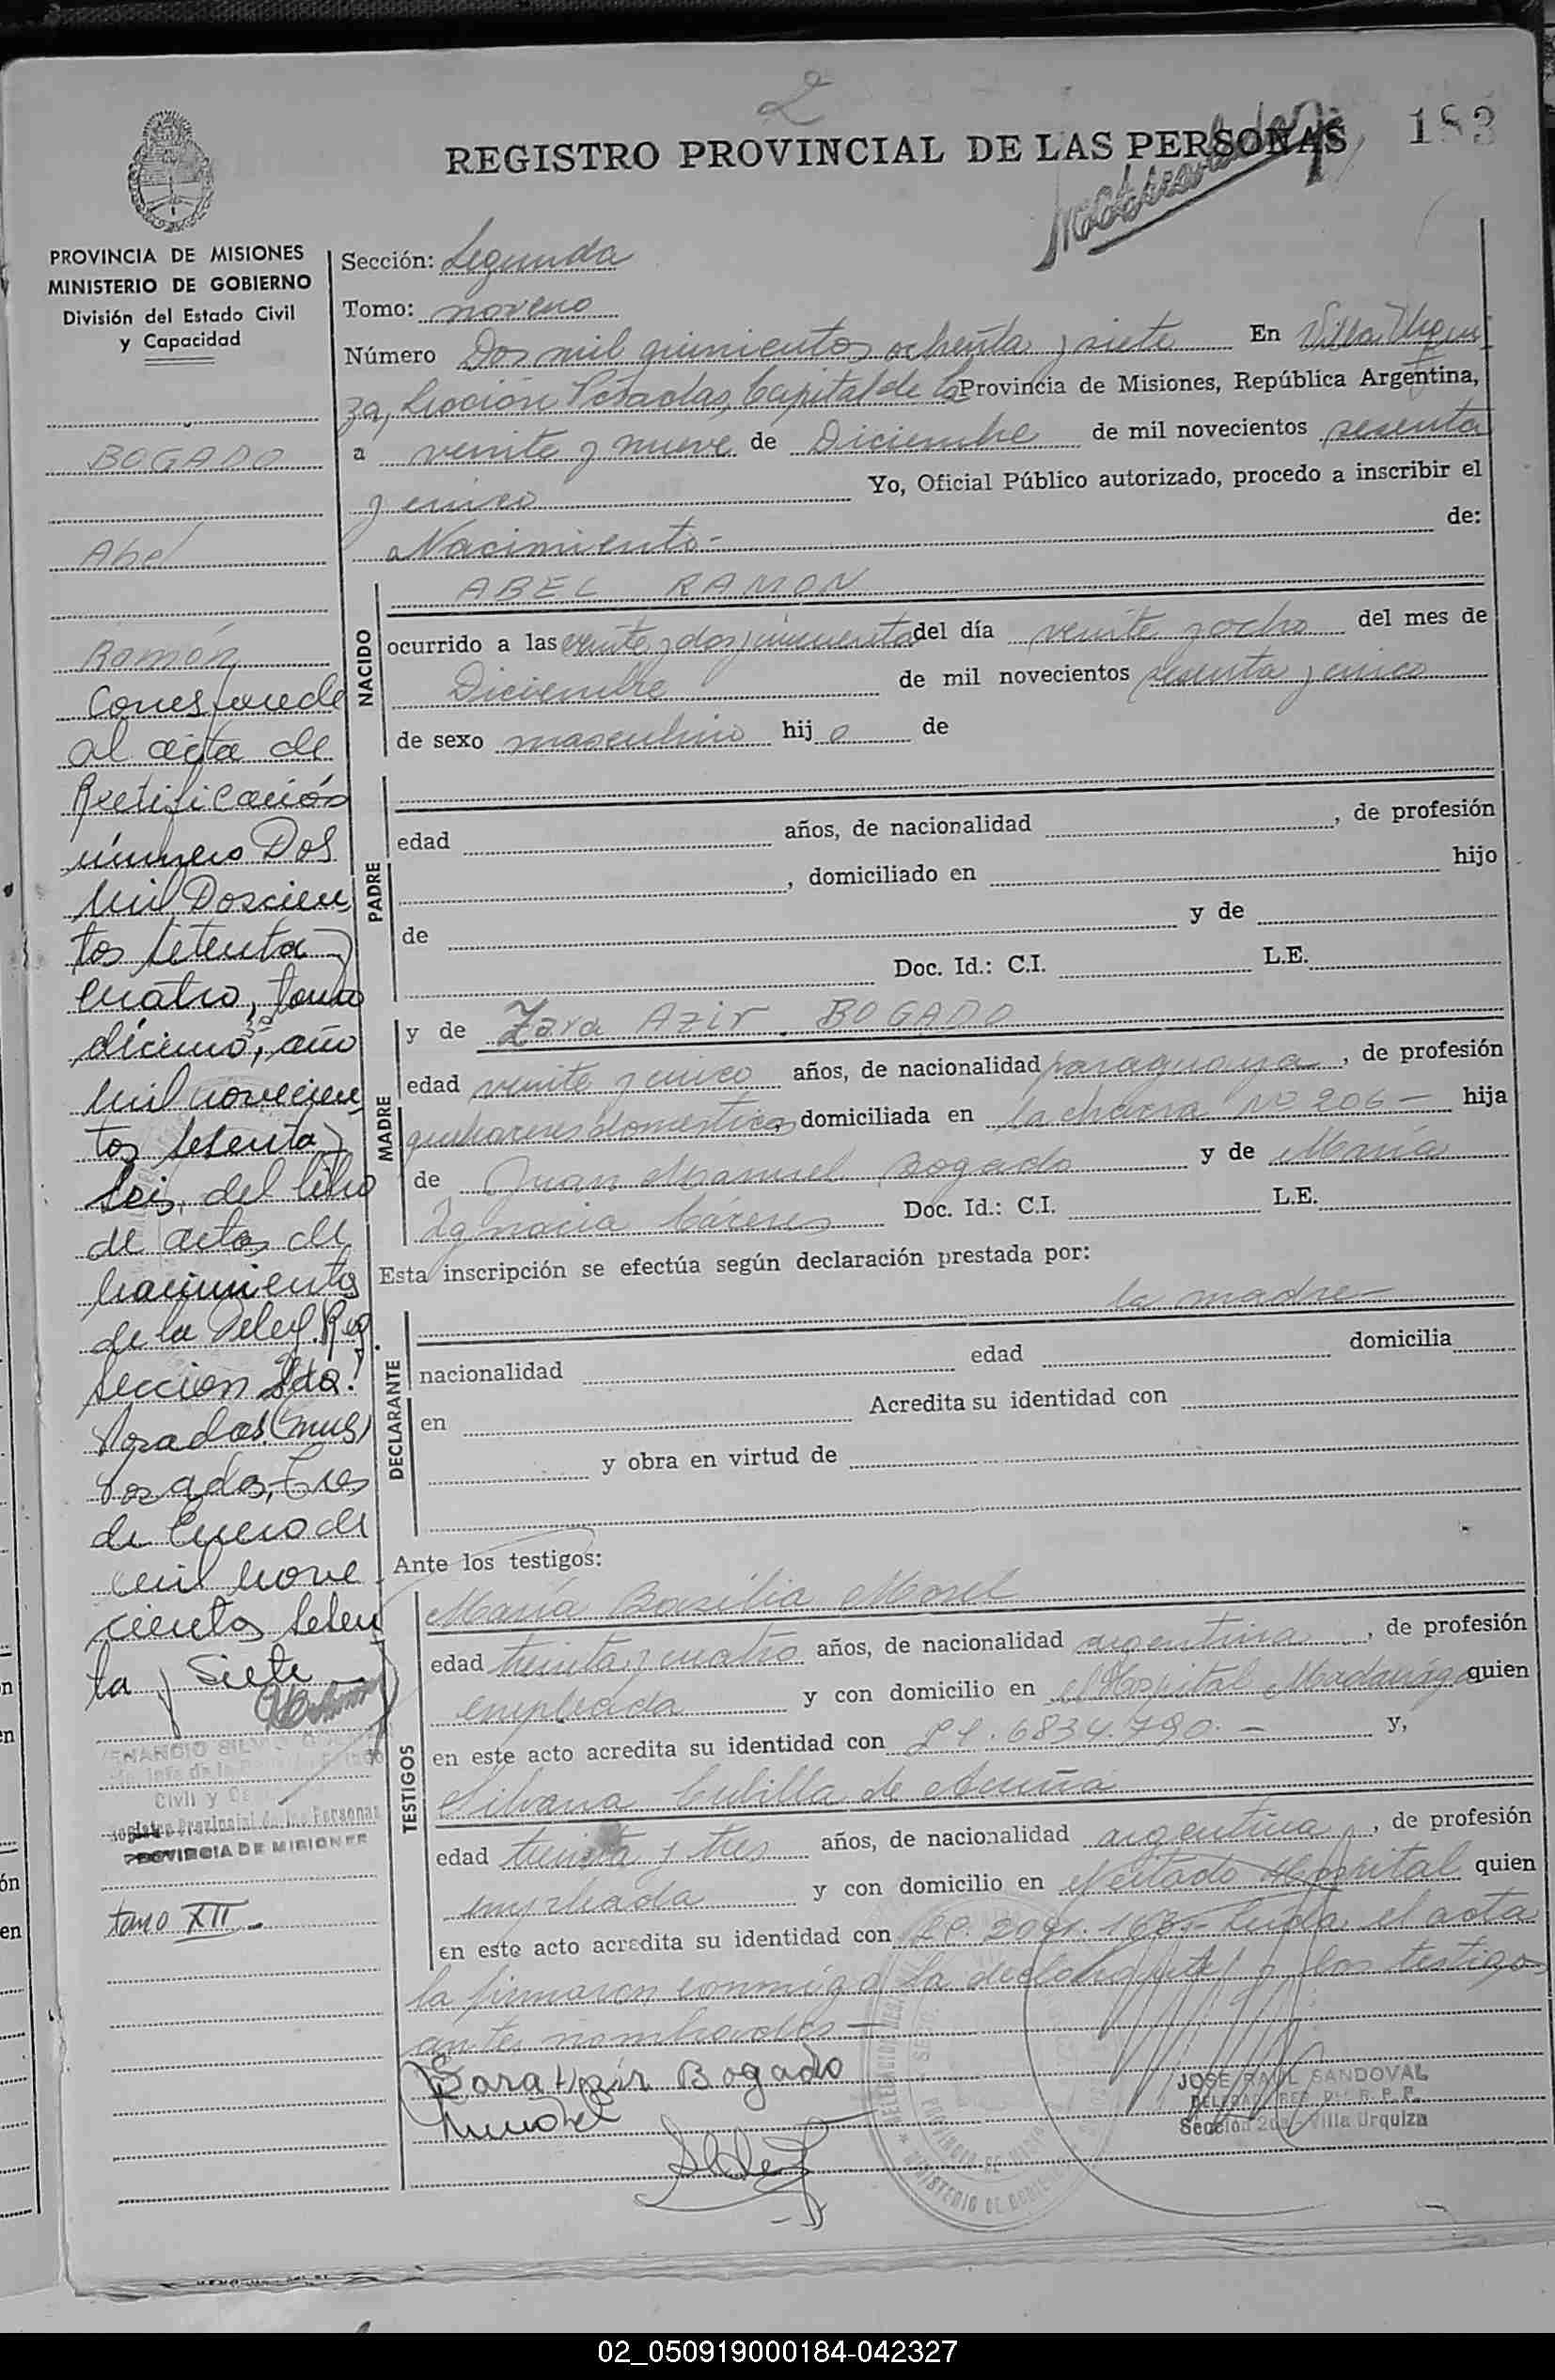 2
REGISTRO PROVINCIAL DE LAS PERSONAS
183
PROVINCIA DE MISIONES
MINISTERIO DE GOBIERNO
División del Estado Civil
y Capacidad
BOGADO
Abel
Ramón
Corresponde
al acta de
Rectificación
número Dos
mil Doscien
tos setenta y
cuatro, tomo
décimo, año
mil novecien
tos setenta y
seis, del libro
de actas de
nacimientos
de la Deleg. Reg.
Sección 2da.
Posadas (Mns)
Posadas, tres
de Enero de
mil nove
cientos seten
ta y siete
Civil y
Registro Provincial de las Personas
PROVINCIA DE MISIONES
tomo XII -
Sección: Segunda
Tomo: noveno
Número Dos mil quinientos ochenta y siete En Villa Urqui
za, Sección Posadas, Capital de la Provincia de Misiones, República Argentina,
a veinte y nueve de Diciembre de mil novecientos sesenta
y cinco Yo, Oficial Público autorizado, procedo a inscribir el
Nacimiento - de:
NACIDO
ABEL RAMON
ocurrido a las veinte y dos y cincuenta del día veinte y ocho del mes de
Diciembre de mil novecientos sesenta y cinco
de sexo masculino hijo de
PADRE
edad años, de nacionalidad , de profesión
, domiciliado en hijo
de y de
Doc. Id.: C.I. L.E.
MADRE
y de Zara Azir BOGADO
edad veinte y cinco años, de nacionalidad paraguaya, de profesión
quehaceres domesticos domiciliada en la chacra No 206 - hija
de Juan Manuel Bogado y de María
Ignacia Cáceres Doc. Id.: C.I. L.E.
Esta inscripción se efectúa según declaración prestada por:
DECLARANTE
la madre -
nacionalidad edad domicilia
en Acredita su identidad con
y obra en virtud de
Ante los testigos:
TESTIGOS
María Basilia Morel
edad treinta y cuatro años, de nacionalidad argentina, de profesión
empleada y con domicilio en el Hospital Madariaga quien
en este acto acredita su identidad con 6834.790. - y,
Silvana Cubilla de Acuña
edad treinta y tres años, de nacionalidad argentina, de profesión
empleada y con domicilio en el citado Hospital quien
en este acto acredita su identidad con Leída el acta
la firmaron conmigo la declarante y los testigos
antes nombrados -
Sara Azir Bogado
JOSE RAUL SANDOVAL
Sección 2da. Villa Urquiza
02_050919000184-042327